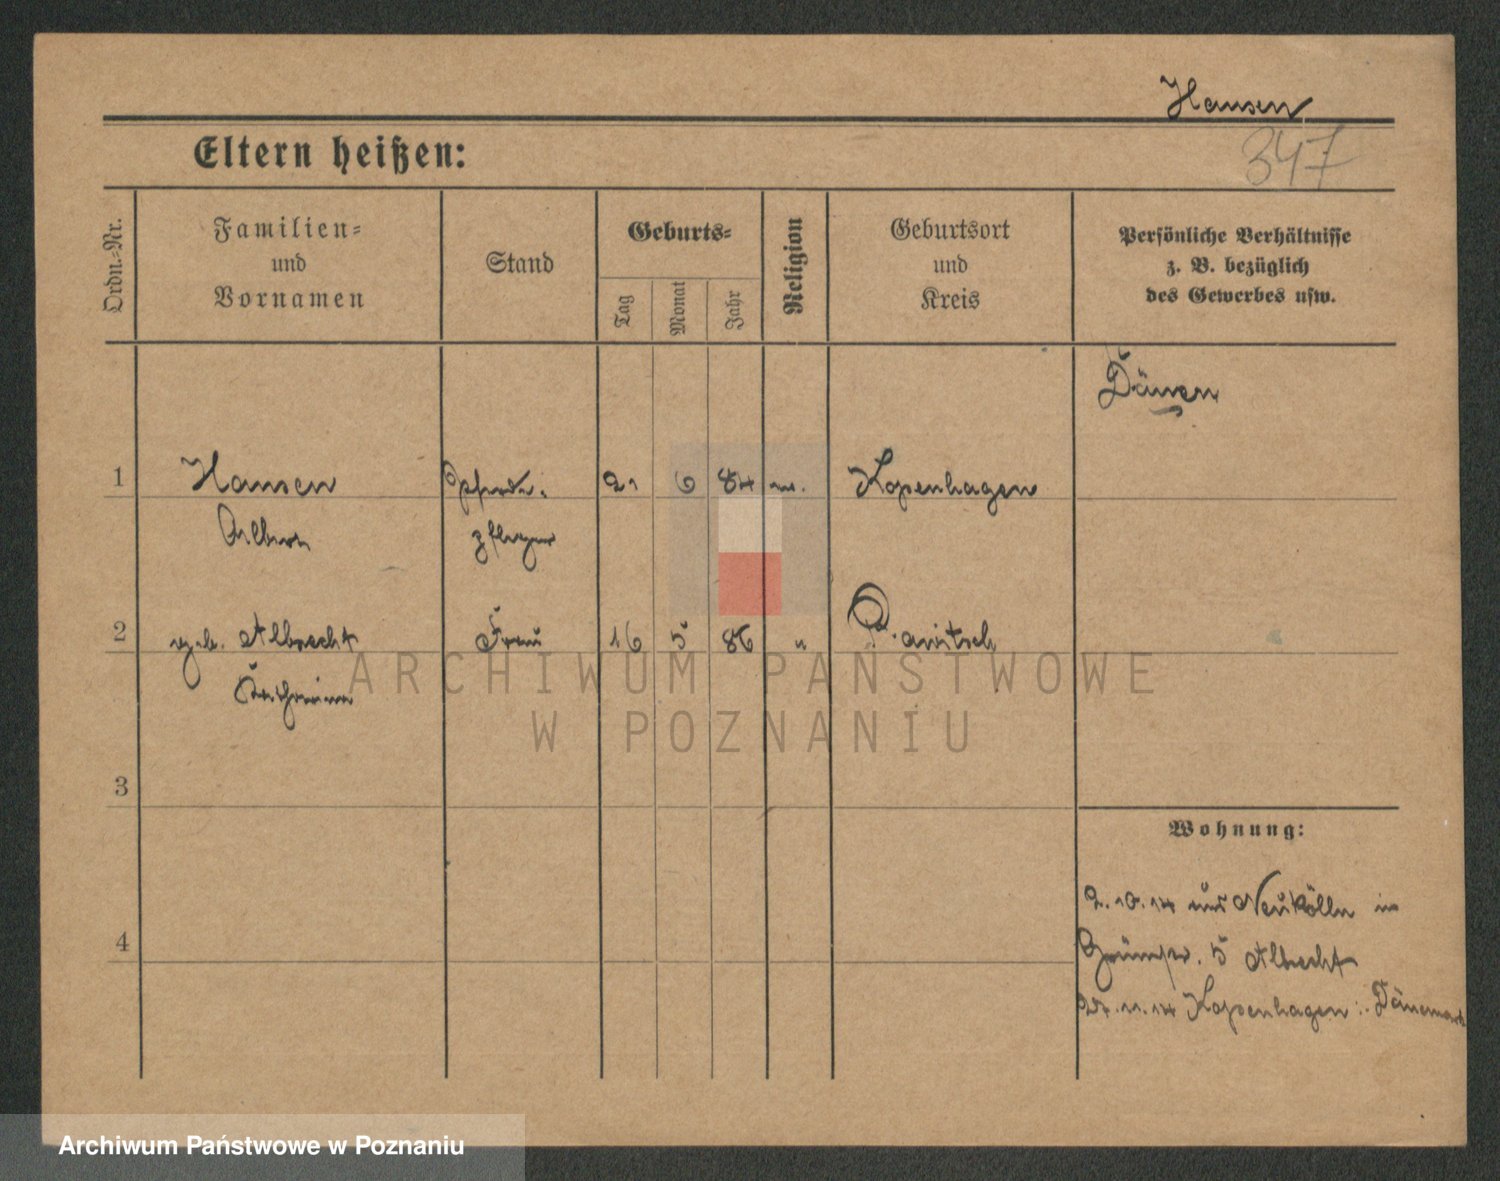 Hansen
347
Eltern heißen:
Ordn.-Nr.
Familien-
und
Vornamen
Stand
Geburts-
Tag
Monat
Jahr
Religion
Geburtsort
und
Kreis
Persönliche Verhältnisse
z. B. bezüglich
des Gewerbes usw.
Dänen
1 Hansen Pferde- 2. 6 84 Kopenhagen
pfleger
2 geb. Albrecht Frau 16 5 86 "
Katharina
ARCHIWUM PAŃSTWOWE
W POZNANIU
3
Wohnung:
2.10.14 aus Neukölln in
5 Albrecht
4
24.11.14 Kopenhagen i. Dänemark
Archiwum Państwowe w Poznaniu